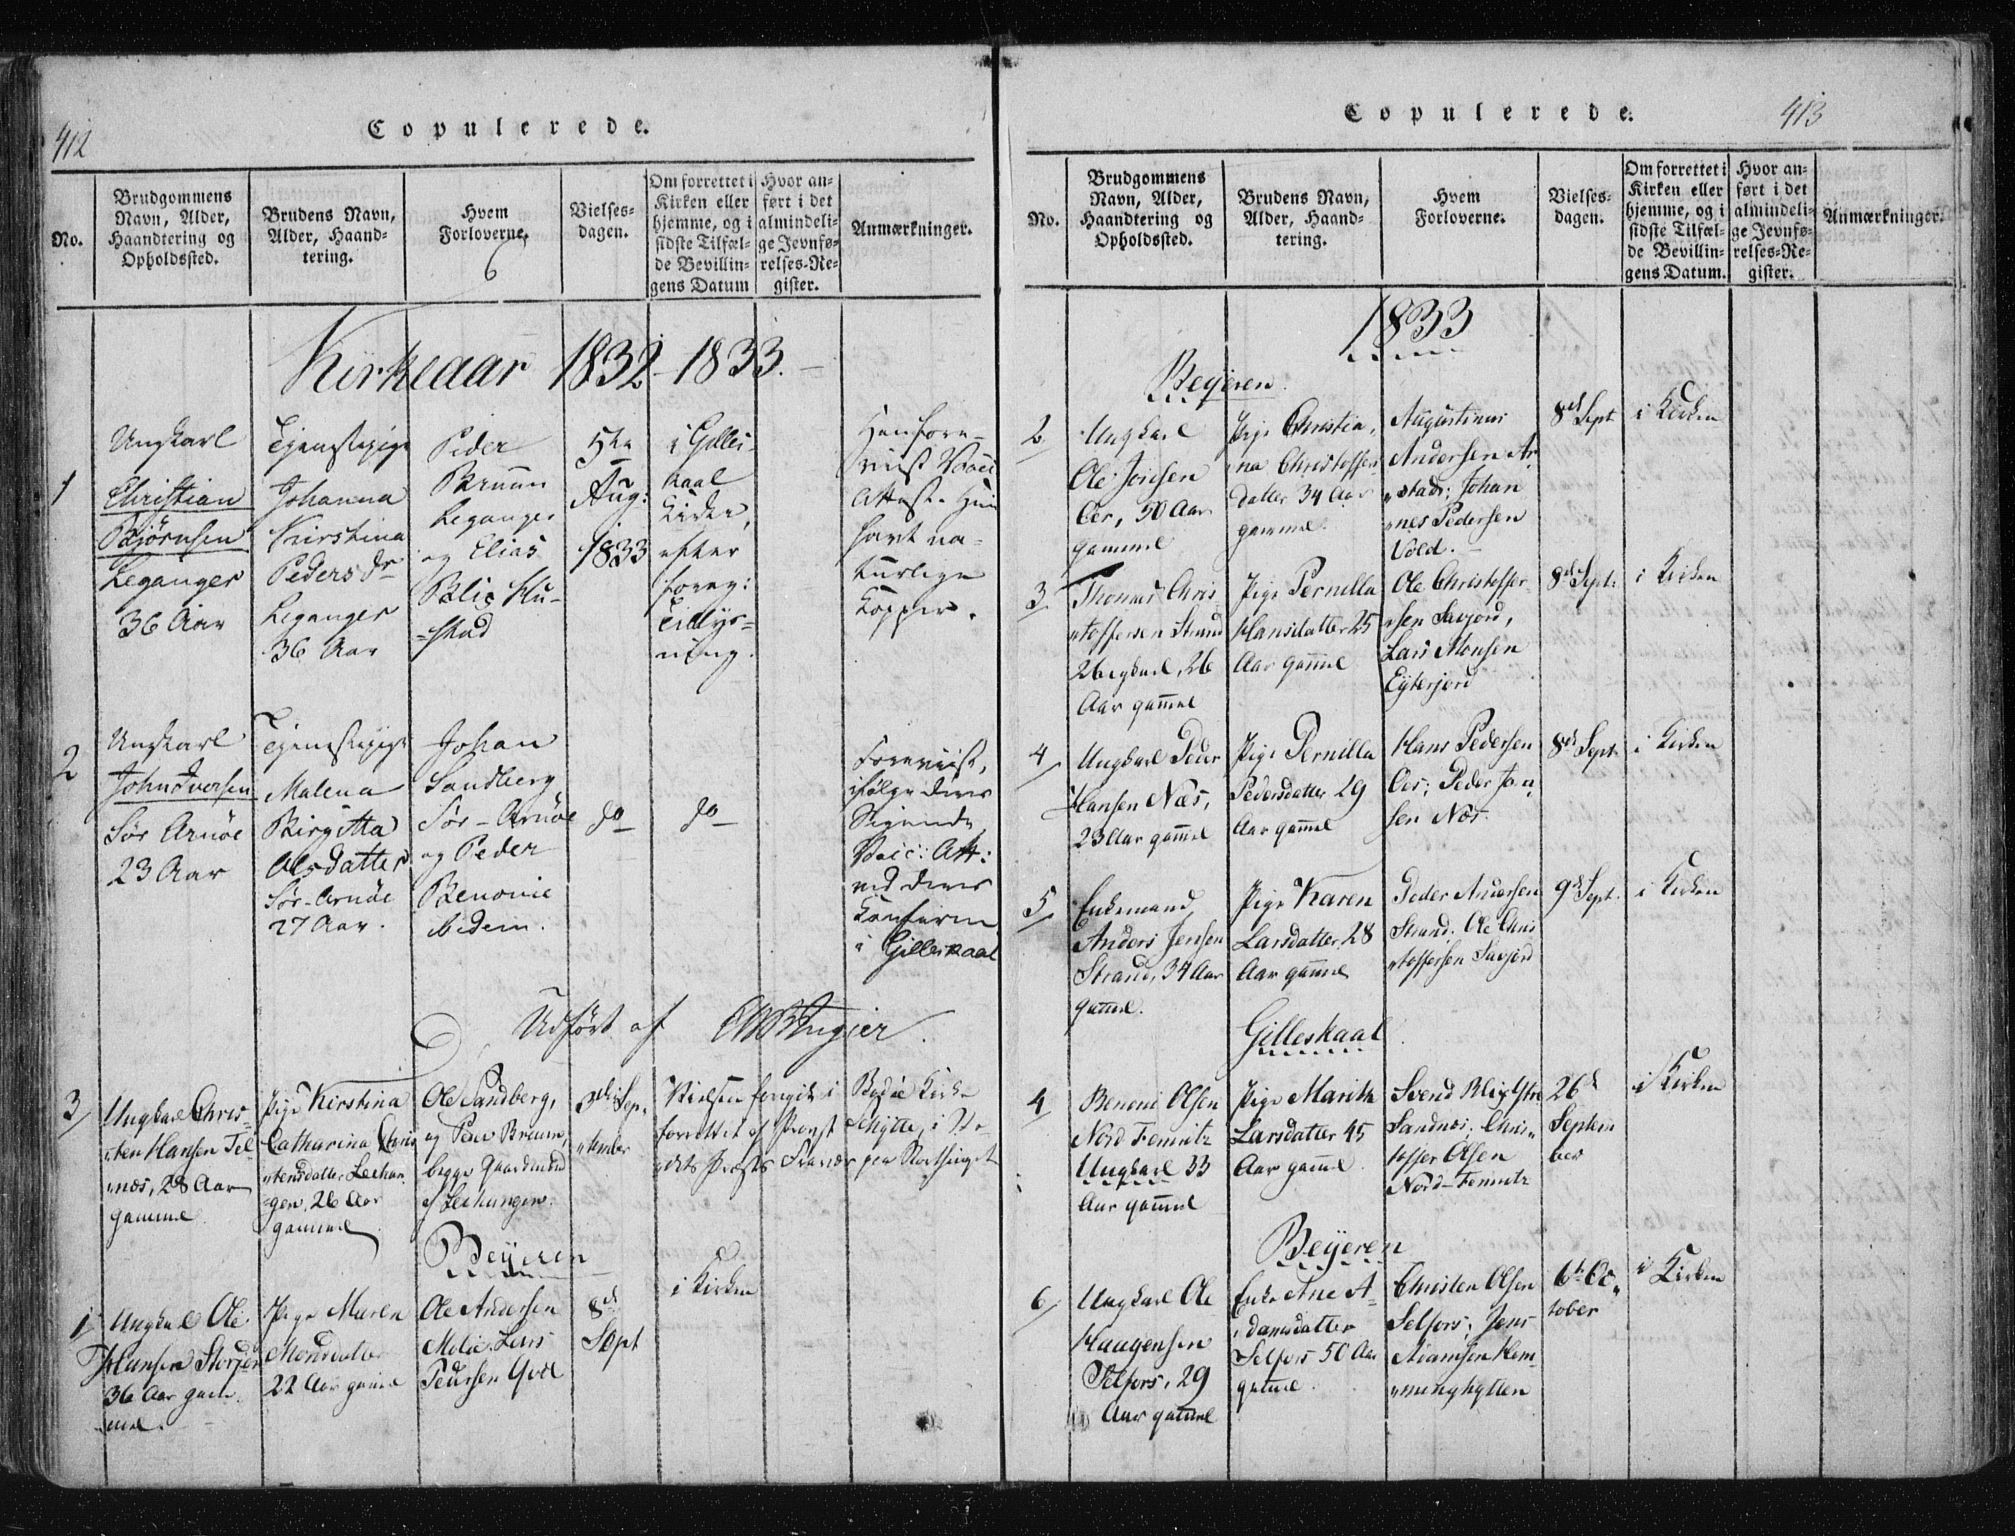 412
Copulerede.
No.
Brudgommens
Navn, Alder,
Haandtering og
Opholdssted.
Brudens Navn,
Alder, Haand-
tering.
Hvem
Forloverne.
6
Vielses-
dagen.
Om forrettet i
Kirken eller
hjemme, og i
sidste Tilfæl-
de Bevillin-
gens Datum
Hvor an-
ført i det
almindeli-
ge Jevnfø-
relses-Re-
gister.
Anmærkninger.
Kirkeaar 1832 - 1833.
1
Ungkarl
Christian
Bjørnsen
Leganger
36 Aar
Tjenestepige
Johanna
Kirstina
Pedersdr
Leganger
36 Aar
Peder
Bruun
Leganger
og Elias
Blix
5te
Aug:
1833
i Gilles-
kaal
Kirke,
efter
foreg:
Tillys-
ning.
Attest. Hun
havt na-
turlige
Kopper.
2
Ungkarl
John Iversen
Sør Arnøe
23 Aar
Tjenestepige
Malena
Birgitta
Olsdatter
Sør-Arnøe
27 Aar.
Johan
Sandberg,
Sør-Arnøe
og Peder
Benonie
ibidem.
do
do
Foreviist,
ifølge deres
Sigende
Vacc: Att:
ved deres
Confirm
i Gilleskaal
Udført af
3
Ungkarl Chris-
"ten Hansen Tel-
"næs, 28 Aar
gammel
Pige Kirstina
Catharina Chris
"tensdatter
-gen, 26 Aar
gammel
Ole Sandberg,
og Peder Bruun,
begge Gaardmænd
3die Sep-
"tember
Vielsen foregik i Bodøe Kirke
forrettet af Provst Schytte, i
Præsts Fravær paa Storthinget
Beyeren
1
Ungkarl Ole
Hansen Storjor
36 Aar gam-
mel.
Pige Maren
Monsdatter
22 Aar gammel
Ole Andersen
Lars
Pedersen
8de
Sept
i Kirken
413
Copulerede.
No.
Brudgommens
Navn, Alder,
Haandtering og
Opholdssted.
Brudens Navn,
Alder, Haand-
tering.
Hvem
Forloverne.
Vielses-
dagen.
Om forrettet i
Kirken eller
hjemme, og i
sidste Tilfæl-
de Bevillin-
gens Datum.
Hvor an-
ført i det
almindeli-
ge Jevnfø-
relses-Re-
gister.
Anmærkninger.
1833
Beyeren
2
Ungkarl
Ole Jonsen
Oer, 50 Aar
gammel
Pige Christia,
"na Christoffers
datter 34 Aar
gammel.
Augustinus
Andersen Ar
"stad; Johan
"nes Pedersen
Vold.
8de Sept
i Kirken
3
Thomas Chris
"toffersen Strand
Ungkarl, 26
Aar gammel
Pige Pernilla
Hansdatter 25
Aar gammel
Ole Christoffer-
"sen Savjord,
Lars Monsen
Eyterjord
8de Sept:
i Kirken
4
Ungkarl Peder
Hansen Næs,
23 Aar gammel
Pige Pernilla
Pedersdatter 29
Aar gammel
Hans Pedersen
Oer; Peder Jon
sen Næs
8de Sept:
i Kirken
5
Enkemand
Anders Jensen
Strand, 34 Aar
gammel.
Pige Karen
Larsdatter, 28
Aar gammel
Peder Andersen
Strand; Ole Chris
"toffersen Savjord
9de Sept.
i Kirken
Gilleskaal
4
Benoni Olsen
Nord Femritz
Ungkarl 33
Aar gammel
Pige Marith
Larsdatter 45
Aar gammel
Svend Blix Ytre
Sandnæs; Chris"
toffer Olsen
Nord-Femritz
26de
Septem
ber
i Kirken
Beyeren
6
Ungkarl Ole
Haagensen
Selfors, 29
Aar gammel
Enke Ane A-
"damsdatter
Selfors 50 Aar
gammel
Christen Olsen
Selfors; Jens
Adamsen Hem-
"minghytten
6te Oc"
tober
i Kirken